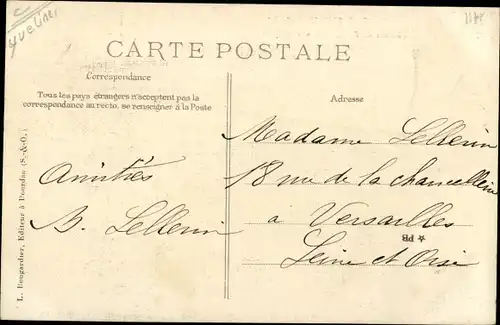 Yvelines
1118
CARTE POSTALE
Correspondance
Tous les pays étrangers n'acceptent pas la
correspondance au recto, se renseigner à la Poste
Adresse
Amitiés
B. Lellerin
Madame Lellerin
18 rue de la chancellerie
a Versailles
Seine et Oise
☆ PB
L. Bougardier, Editeur à Dourdan (S.-&-O.)